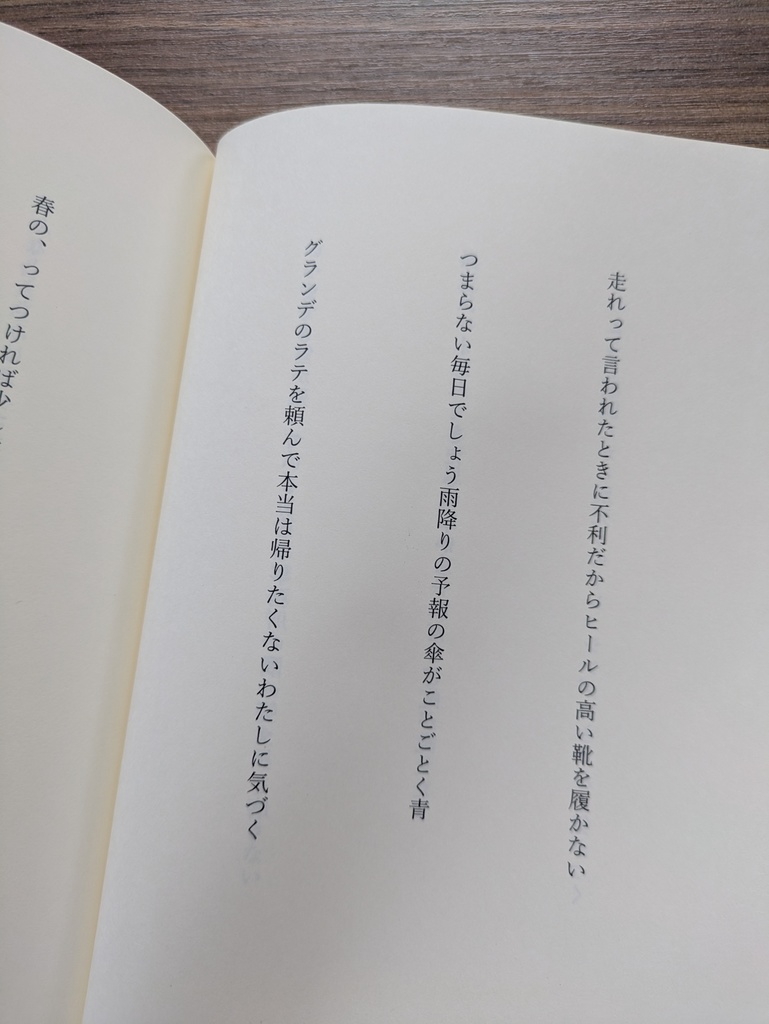 走れって言われたときに不利だからヒールの高い靴を履かない
つまらない毎日でしょう雨降りの予報の傘がことごとく青
グランデのラテを頼んで本当は帰りたくないわたしに気づく
春の、ってつければ少し